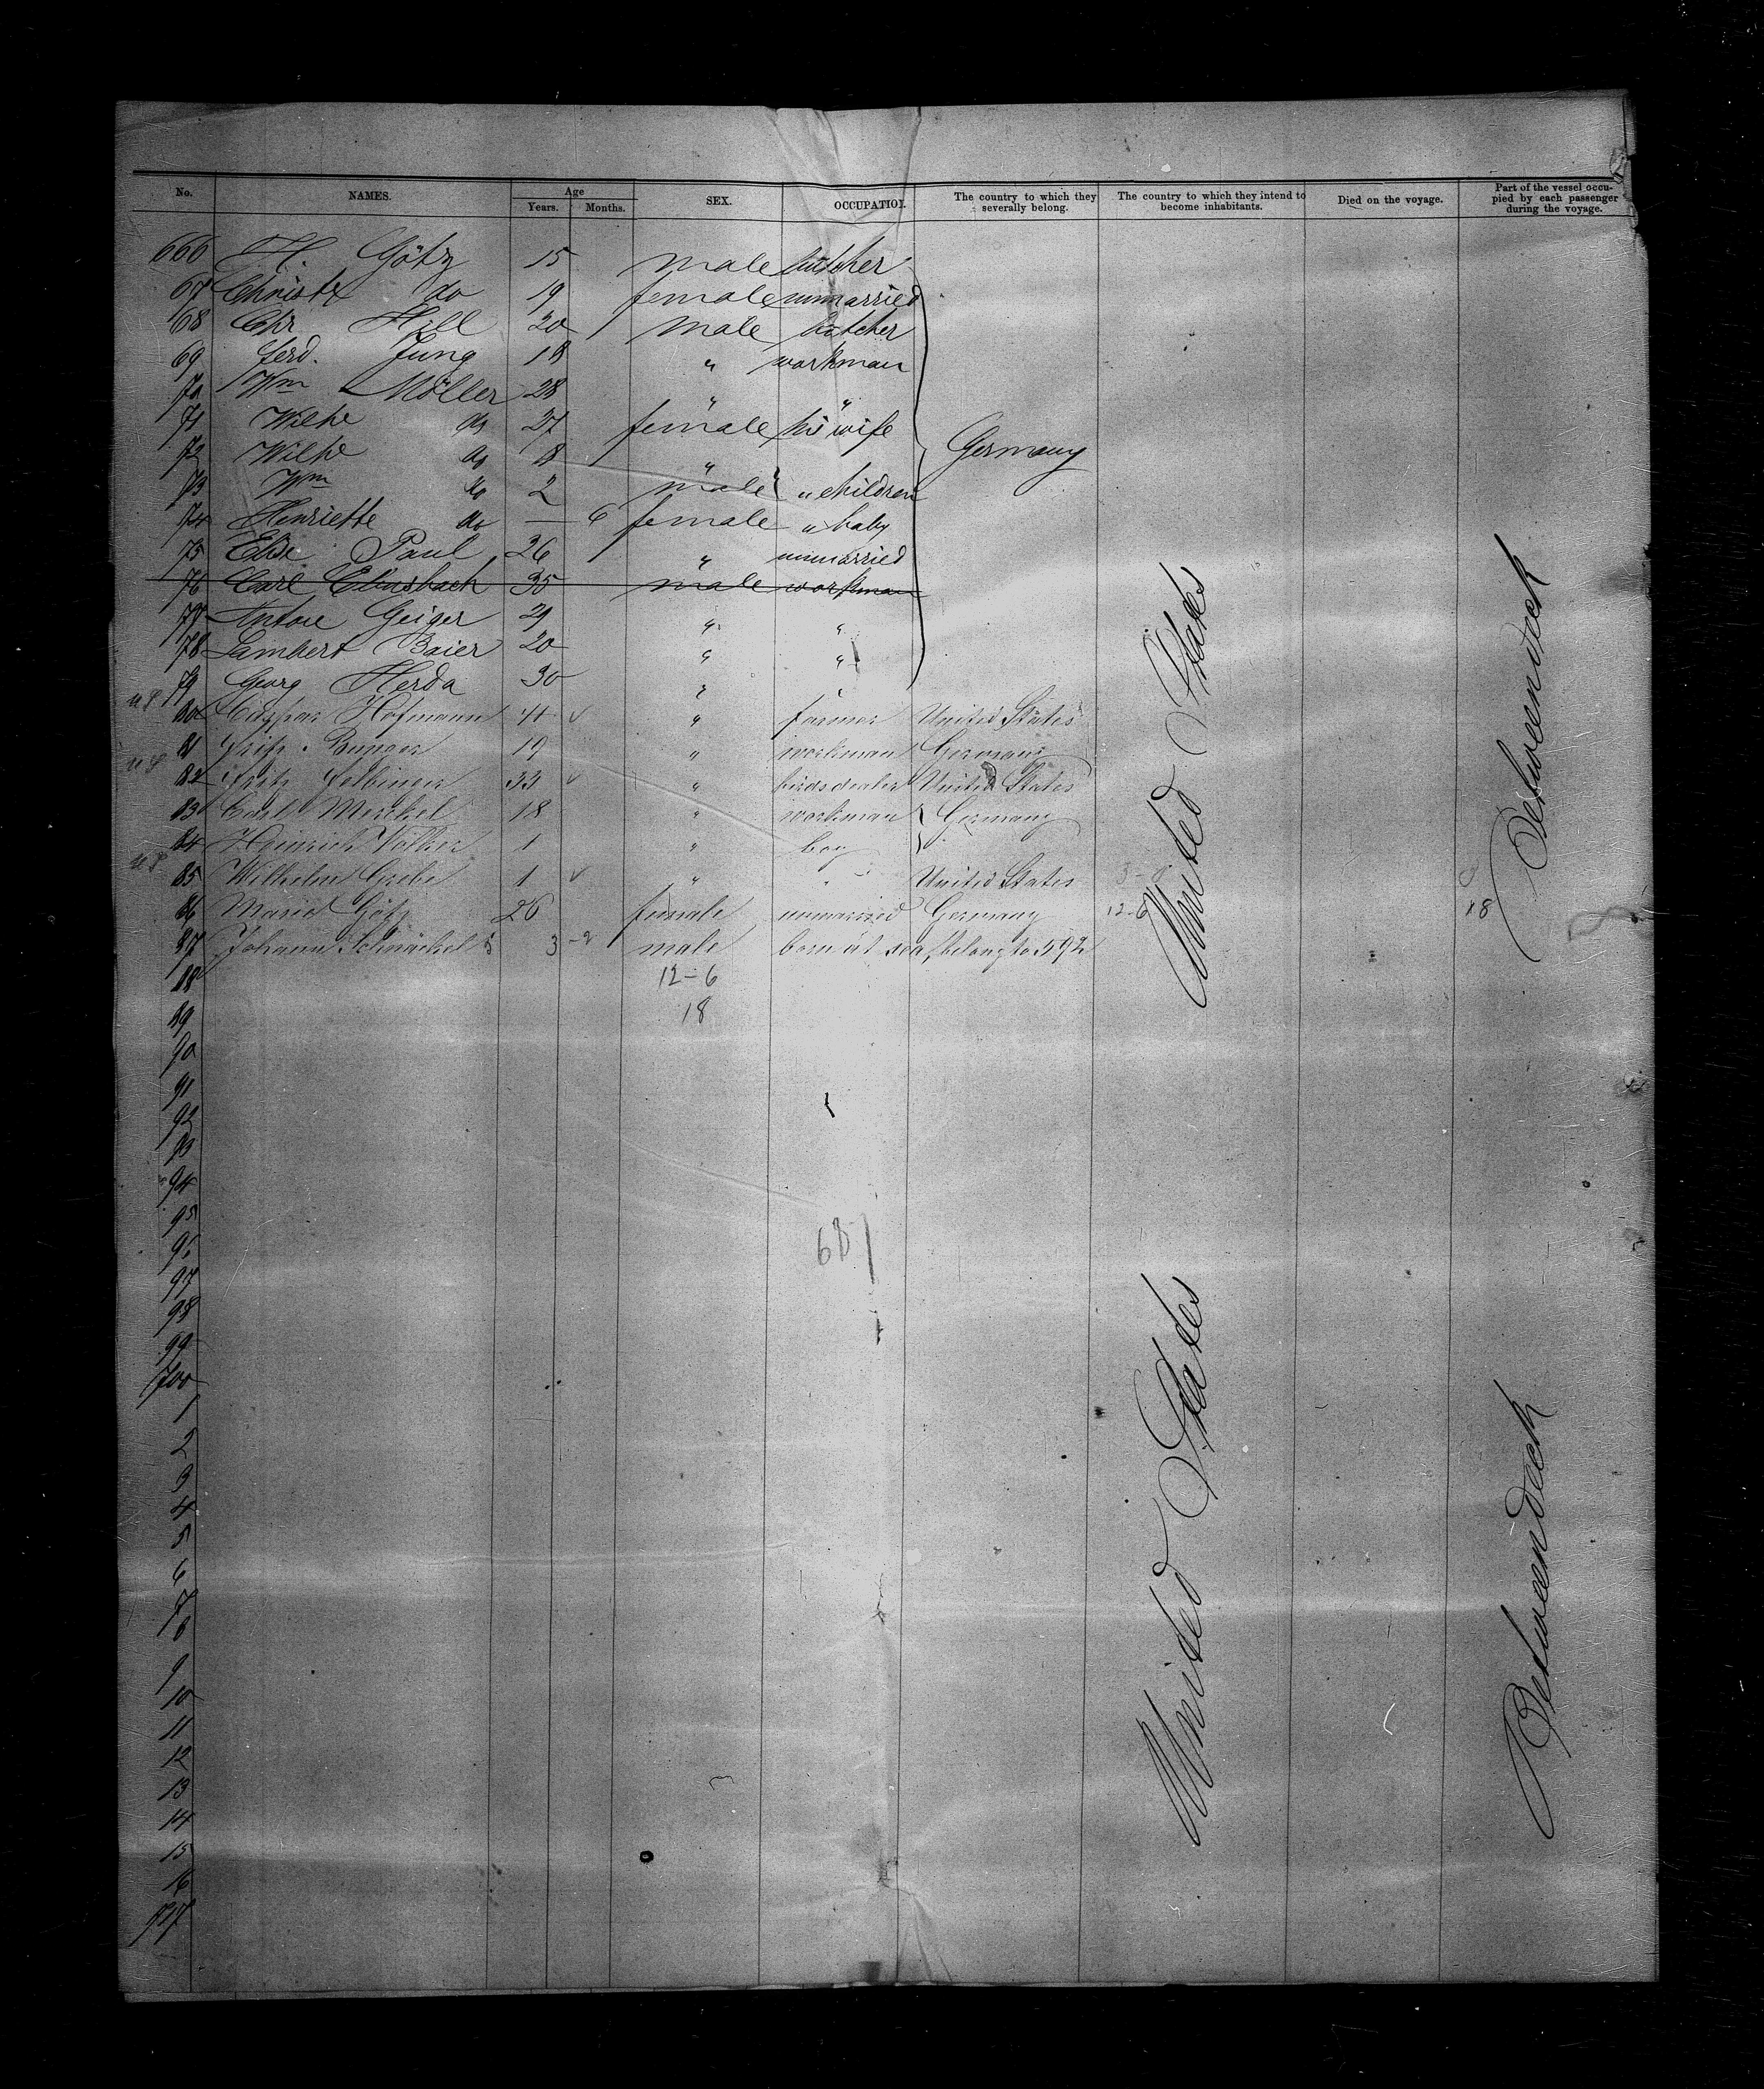 No. NAMES. Age Years. Months. SEX. OCCUPATION. The country to which they severally belong. The country to which they intend to become inhabitants. Died on the voyage. Part of the vessel occupied by each passenger during the voyage.
666 H. Götz 15 male butcher
67 Christe do 19 female unmarried
68 Chr Hill 20 male butcher
69 Ferd. Jung 18 " workman
70 Wm Möller 28 " "
71 Wilhe do 27 female his wife
72 Wilhe do 8 " Germany
73 Wm do 2 male " children
74 Henriette do — 6 female " baby
75 Elise Paul 26 " unmarried
76 Carl 35 male workman
77 Antone Geiger 29 " "
78 Lambert Baier 20 " "
79 Georg Herda 30 " "
U S 80 Caspar Hofmann 41 " farmer United States
81 Fritz 19 " workman Germany
U S 82 Fritz 33 " birdsdealer United States
83 Carl Merkel 18 " workman Germany
84 Heinrich Volker 1 " boy
U S 85 Wilhelm Grebe 1 " " United States
86 Marie Götz 26 female unmarried Germany 12-6 18
87 Johann 3 male born at sea, belong to 592
88 12-6
89 18
90
91
92
93
94
95
96 681
97
98
99
700
1
2
3
4
5
6
7
8
9
10
11
12
13
14
15
16
717
United States
Betweendeck
United States
Betweendeck